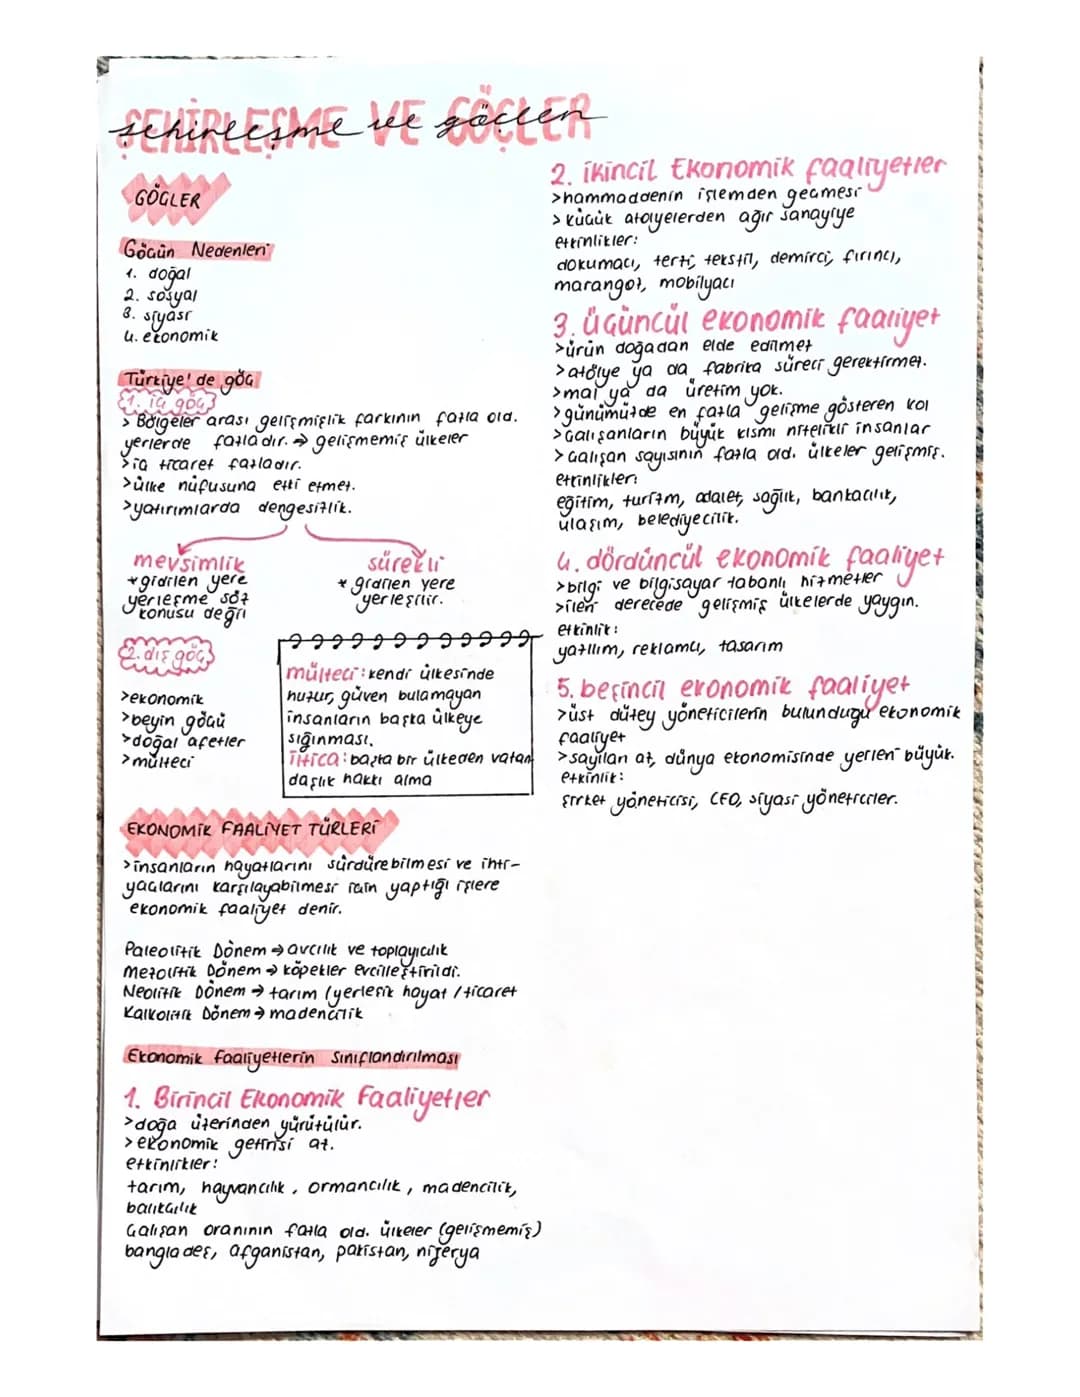 ŞEHİRLEŞME VE GÖÇLER
şehirleşme ve göçler
GÖÇLER
Göçün Nedenleri
1. doğal
2. sosyal
3. siyasi
4. ekonomik
Türkiye'de göç
1. iç göç
> Bölgeler arası gelişmişlik farkının fazla old.
yerlerde fazladır. → gelişmemiş ülkeler
> iç ticaret fazladır.
> ülke nüfusuna etki etmez.
> yatırımlarda dengesizlik.
mevsimlik
* gidilen yere
yerleşme söz
konusu değil
sürekli
* gidilen yere
yerleşilir.
2. dış göç
> ekonomik
> beyin göçü
> doğal afetler
> mülteci
mülteci: kendi ülkesinde
huzur, güven bulamayan
insanların başka ülkeye
sığınması.
iltica: başka bir ülkeden vatan
daşlık hakkı alma
EKONOMİK FAALİYET TÜRLERİ
> insanların hayatlarını sürdürebilmesi ve ihti-
yaçlarını karşılayabilmesi için yaptığı işlere
ekonomik faaliyet denir.
Paleolitik Dönem → avcılık ve toplayıcılık
Mezolitik Dönem → köpekler evcilleştirildi.
Neolitik Dönem → tarım / yerleşik hayat / ticaret
Kalkolitik Dönem → madencilik
Ekonomik faaliyetlerin Sınıflandırılması
1. Birincil Ekonomik Faaliyetler
> doğa üzerinden yürütülür.
> ekonomik getirisi az.
etkinlikler:
tarım, hayvancılık, ormancılık, madencilik,
balıkçılık
Çalışan oranının fazla old. ülkeler (gelişmemiş)
bangladeş, afganistan, pakistan, nijerya
2. ikincil Ekonomik faaliyetler
> hammaddenin işlemden geçmesi
> küçük atolyelerden ağır sanayiye
etkinlikler:
dokumacı, terzi, tekstil, demirci, fırıncı,
marangoz, mobilyacı
3. üçüncül ekonomik faaliyet
> ürün doğadan elde edilmez
> atölye ya da fabrika süreci gerektirmez.
> mal ya da üretim yok.
> günümüzde en fazla gelişme gösteren kol
> çalışanların büyük kısmı nitelikli insanlar
> çalışan sayısının fazla old. ülkeler gelişmiş.
etkinlikler:
eğitim, turizm, adalet, sağlık, bankacılık,
ulaşım, belediyecilik.
4. dördüncül ekonomik faaliyet
> bilgi ve bilgisayar tabanlı hizmetler
> ileri derecede gelişmiş ülkelerde yaygın.
etkinlik:
yazılım, reklamcı, tasarım
5. beşincil ekonomik faaliyet
> üst düzey yöneticilerin bulunduğu ekonomik
faaliyet
> sayıları az, dünya ekonomisinde yerleri büyük.
etkinlik:
şirket yöneticisi, CEO, siyasi yöneticiler.